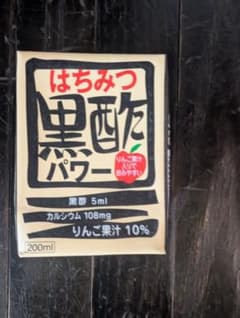 はちみつ
黒酢
パワー
りんご果汁
入りで
飲みやすい
黒酢 5ml
カルシウム 108mg
りんご果汁 10%
200ml